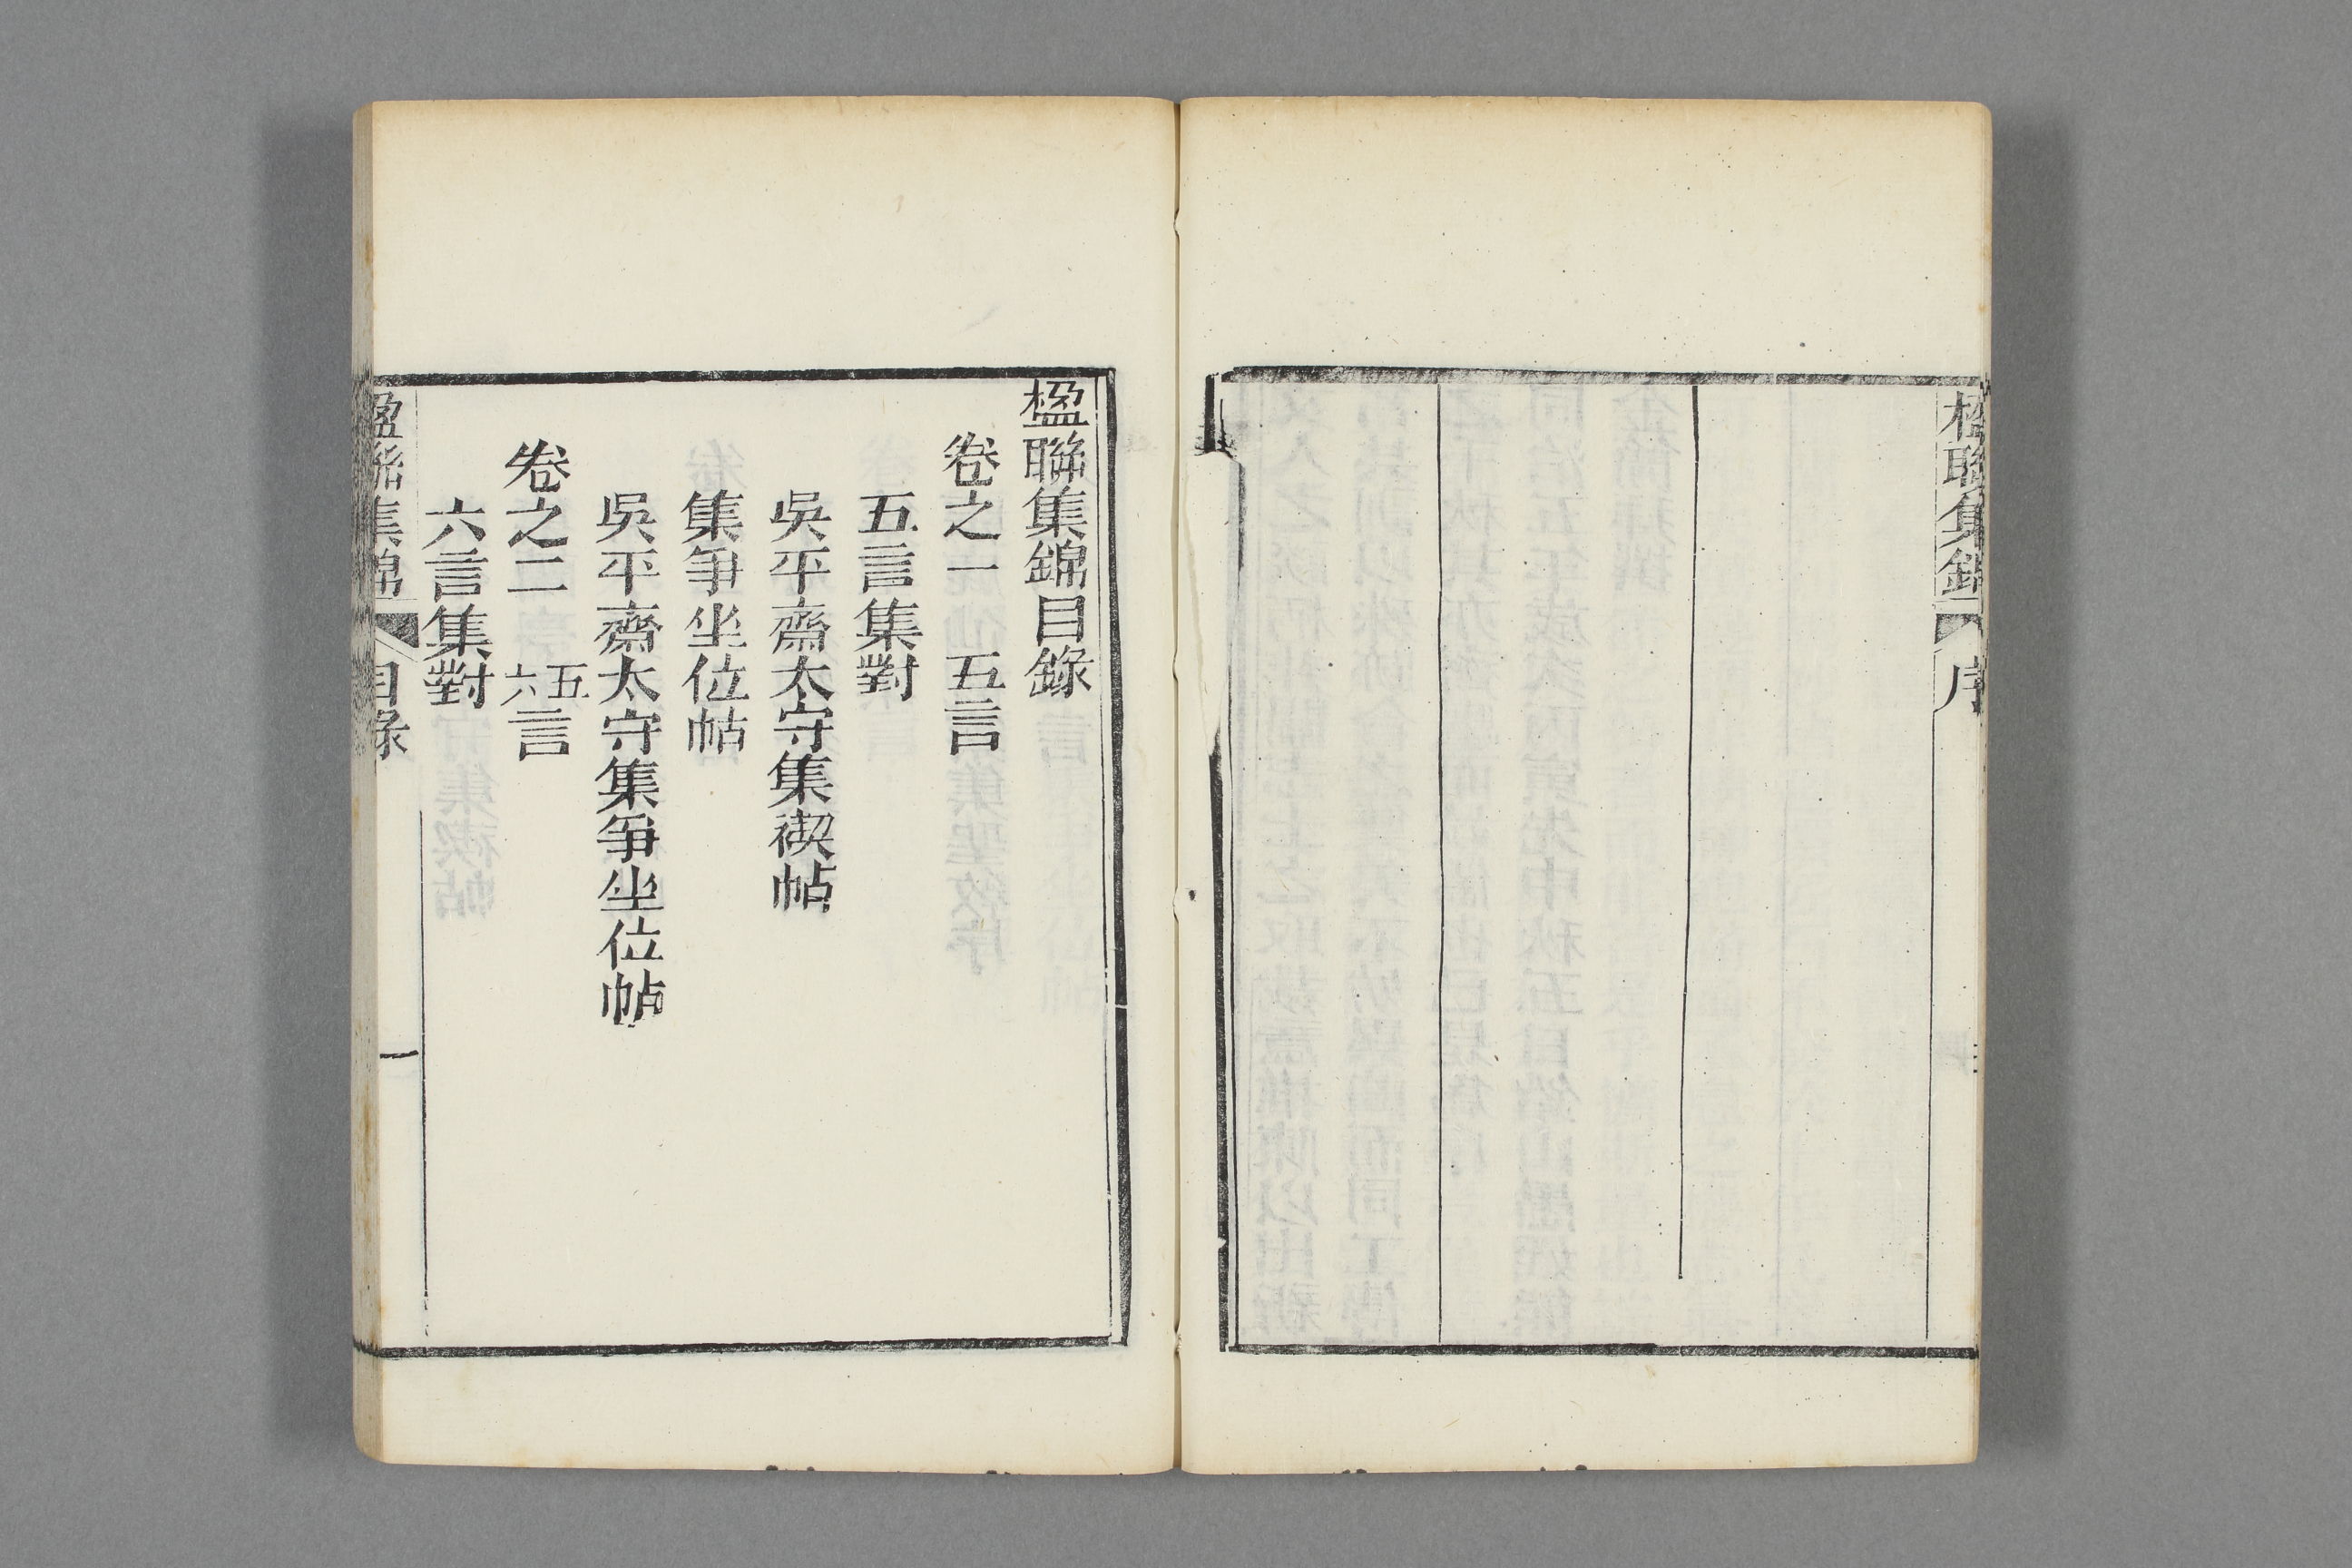 楹聯集錦
序
楹聯集錦目錄
卷之一　五言
五言集對
吳平齋太守集禊帖
集爭坐位帖
吳平齋太守集爭坐位帖
卷之二　五六言
六言集對
楹聯集錦
目錄
一